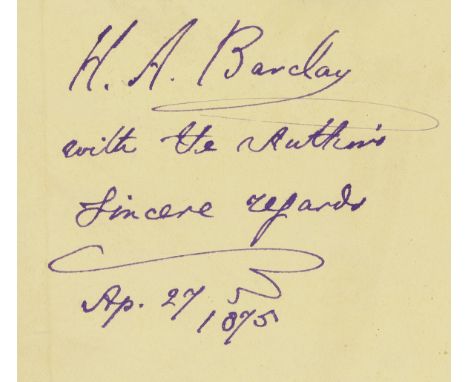 H. A. Barclay
with the Author's
Sincere regards
Ap. 27 1875